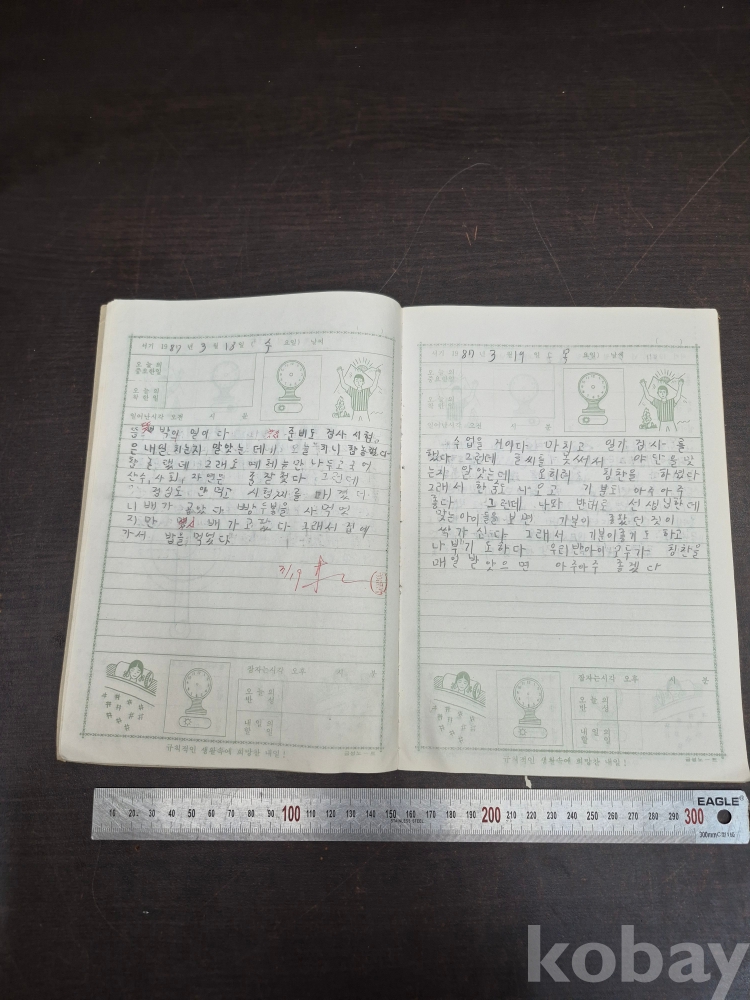 서기 1987년 3월 18일 수요일 날씨
오늘의 중요한일
오늘의 착한일
일어난시각 오전 시 분
뜻밖의 일이다 준비도 검사 시험
은 내일 치는지 알았는데 오늘 치니 참
했는데 그래도
산수, 사회, 자연은 잘 쳤다 그런데
점심도 안먹고 시험지를 매겼더
니 배가 고팠다 빵두봉을 사먹었
지만 배가고팠다 그래서 집에
가서 밥을 먹었다
3/19
잠자는시각 오후 시 분
오늘의 반성
내일의 할일
규칙적인 생활속에 희망찬 내일!
서기 1987년 3월 19일 목요일 날씨
수업을 거이다 마치고 일기 검사를
했다 그런데 글씨를 못써서 야단을맞
는지 알았는데 오히려 칭찬을 하셨다
그래서 한숨도 나오고 기분도 아주아주
좋다 그런데 나와 반대로 선생님한데
맞는아이들을 보면 기분이 좋았던것이
싹가신다 그래서 기분이좋기도 하고
나쁘기도하다 우리반아이 모두가 칭찬을
매일 받았으면 아주아주 좋겠다
잠자는시각 오후 시 분
오늘의 반성
내일의 할일
규칙적인 생활속에 희망찬 내일!
10 20 30 40 50 60 70 80 90 100 110 120 130 140 150 160 170 180 190 200 210 220 230 240 250 260 270 280 290 300
STAINLESS STEEL
EAGLE
kobay